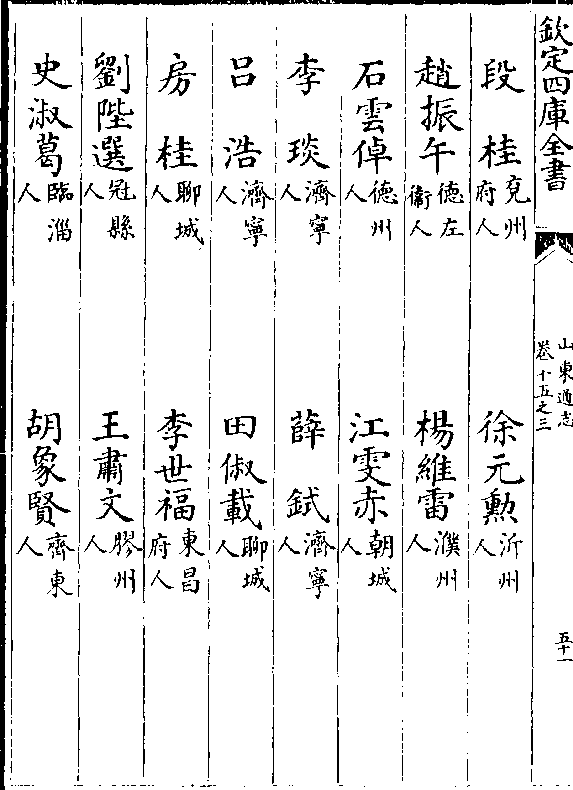 欽定四庫全書
山東通志
卷十五之三
五十一
段桂兗州府人
徐元勲沂州人
趙振午德左衞人
楊維雷濮州人
石雲倬德州人
江雯赤朝城人
李琰濟寧人
薛鉽濟寧人
吕浩濟寧人
田俶載聊城人
房桂聊城人
李世福東昌府人
劉陛選冠縣人
王肅文膠州人
史淑葛臨淄人
胡象賢齊東人